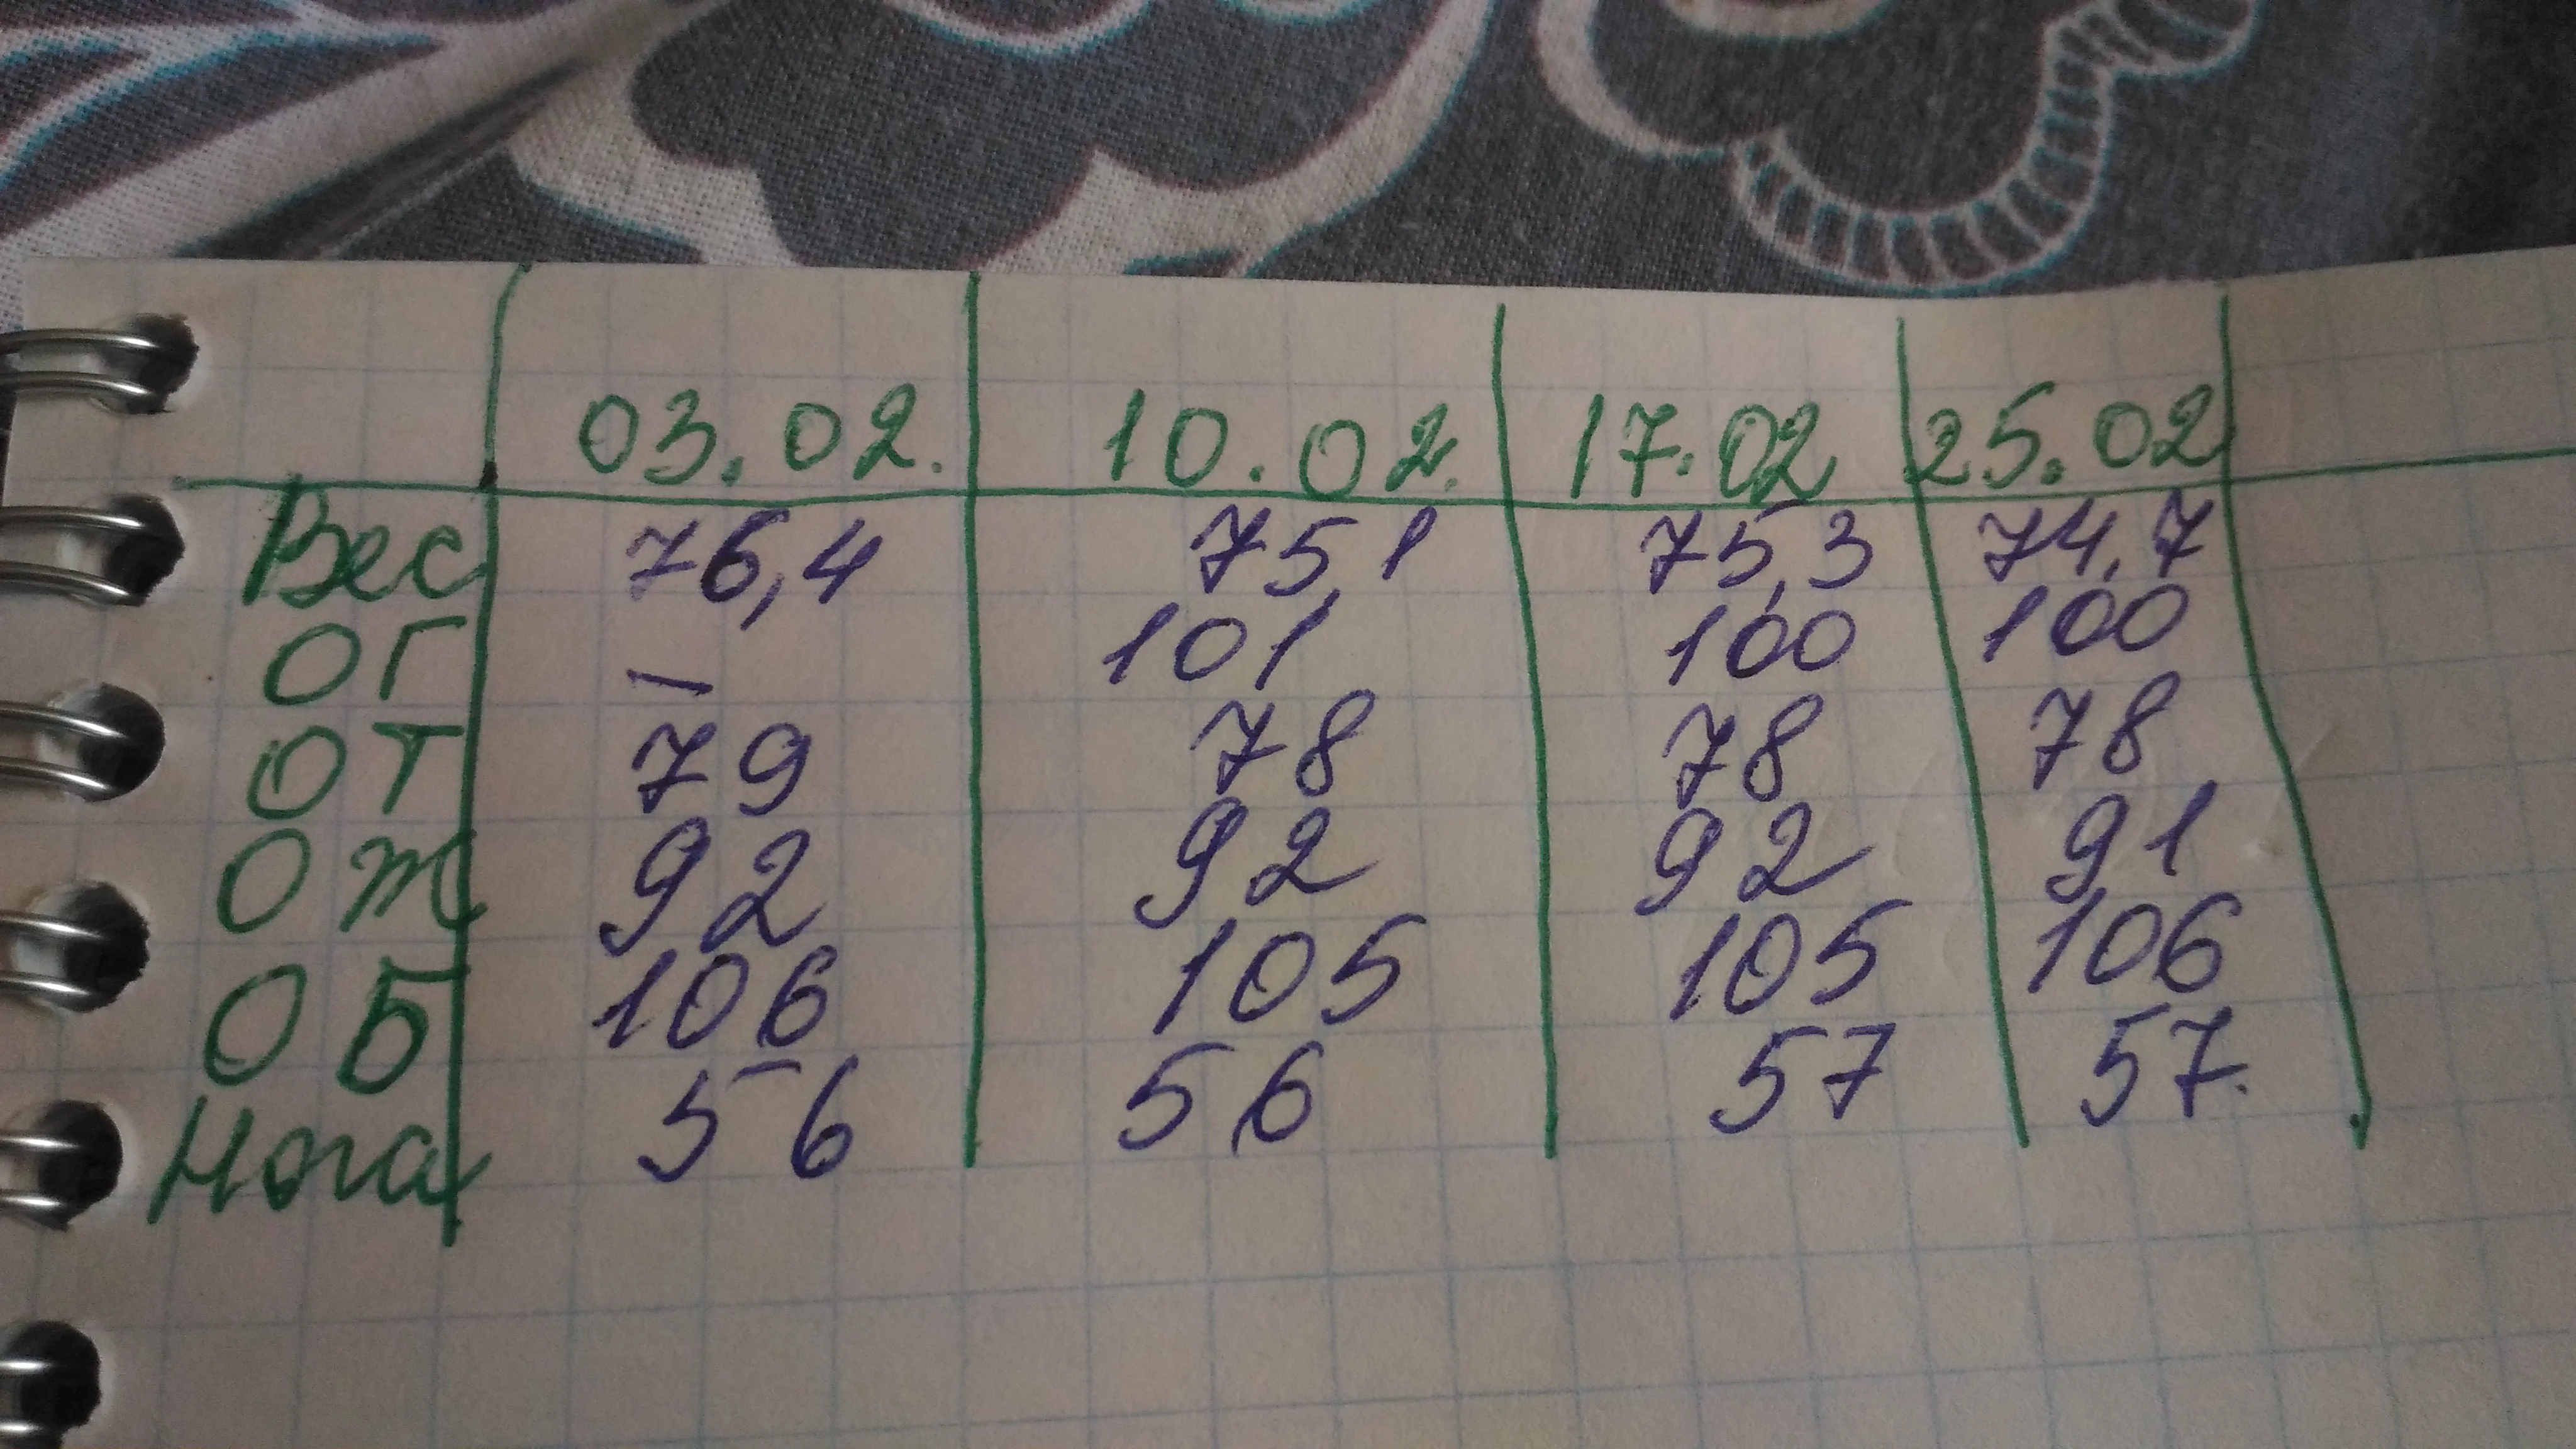 03.02. 10.02. 17.02 25.02
Вес 76,4 75,1 75,3 74,7
ОГ — 101 100 100
ОТ 79 78 78 78
ОЖ 92 92 92 91
ОБ 106 105 105 106
Нога 56 56 57 57.